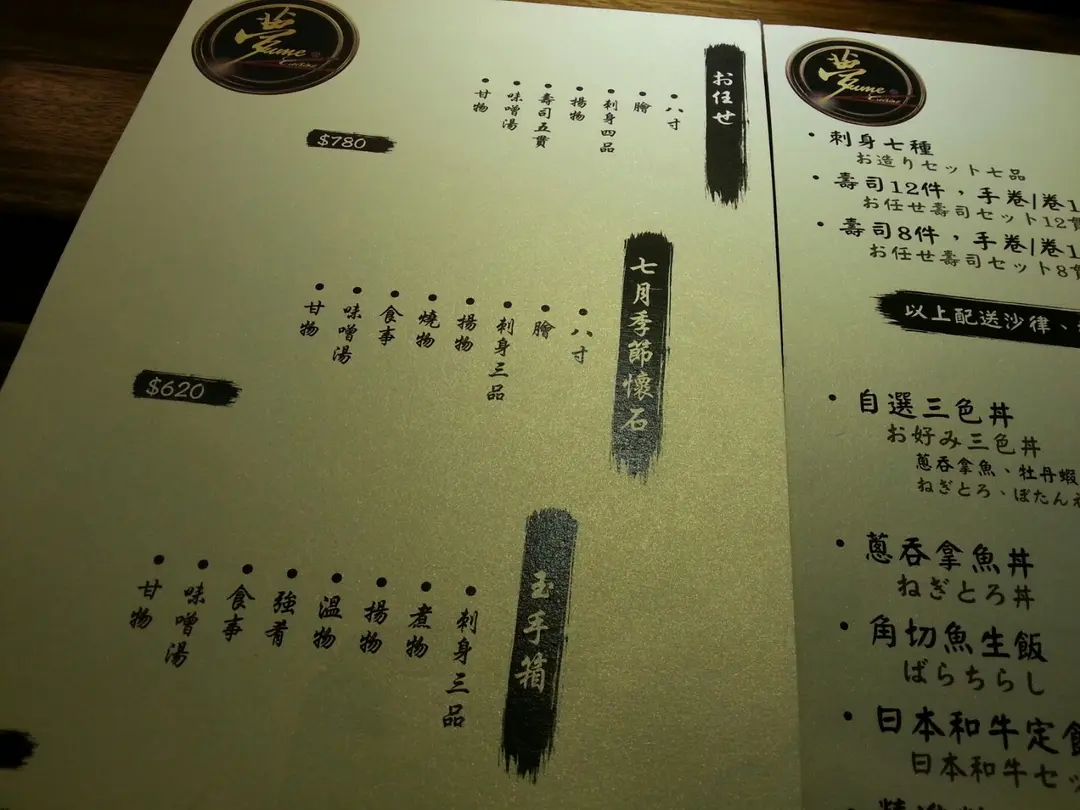 夢
Yume
お任せ
• 八寸
• 膾
• 刺身四品
• 揚物
• 壽司五貫
• 味噌湯
• 甘物
$780
七月季節懷石
• 八寸
• 膾
• 刺身三品
• 揚物
• 燒物
• 食事
• 味噌湯
• 甘物
$620
玉手箱
• 刺身三品
• 煮物
• 揚物
• 溫物
• 強肴
• 食事
• 味噌湯
• 甘物
夢
Yume
• 刺身七種
お造りセット七品
• 壽司12件，手卷/卷1
お任せ壽司セット12貫
• 壽司8件，手卷/卷1
お任せ壽司セット8貫
以上配送沙律、
• 自選三色丼
お好み三色丼
蔥吞拿魚、牡丹蝦
ねぎとろ、ぼたん
• 蔥吞拿魚丼
ねぎとろ丼
• 角切魚生飯
ばらちらし
• 日本和牛定食
日本和牛セッ